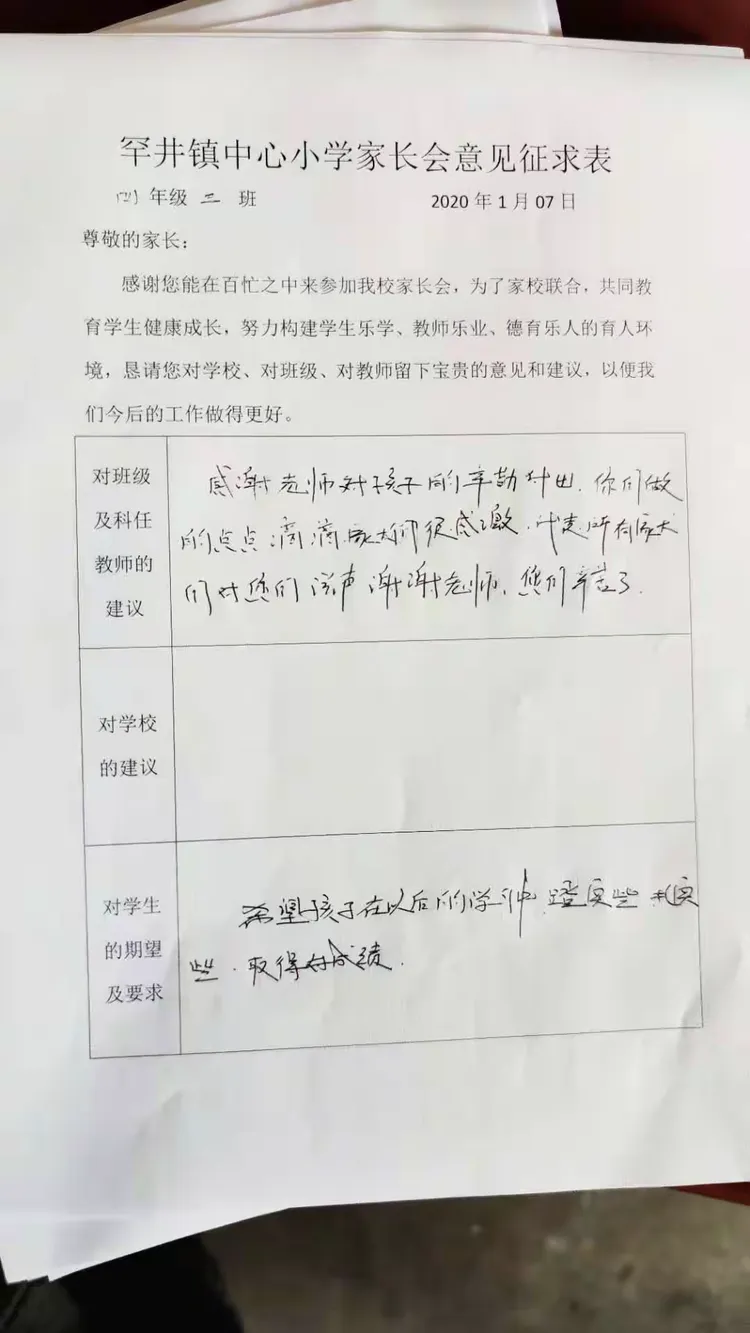 罕井镇中心小学家长会意见征求表
四年级三班 2020年1月07日
尊敬的家长：
感谢您能在百忙之中来参加我校家长会，为了家校联合，共同教
育学生健康成长，努力构建学生乐学、教师乐业、德育乐人的育人环
境，恳请您对学校、对班级、对教师留下宝贵的意见和建议，以便我
们今后的工作做得更好。
对班级
及科任
教师的
建议
感谢老师对孩子的辛勤付出．你们做
的点点滴滴家长们很感激．所有家长
们对您们说声谢谢老师．您们辛苦了．
对学校
的建议
对学生
的期望
及要求
希望孩子在以后的学 踏实些
些．取得好成绩．